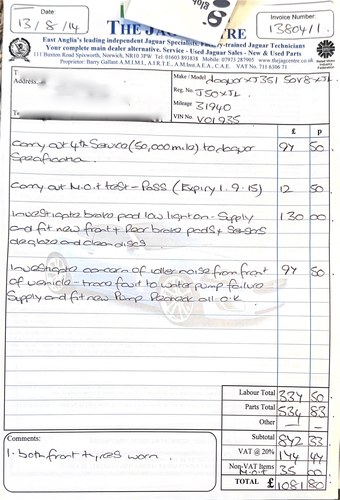 Date:
13/8/14
THE JAG CENTRE
Invoice Number:
138041/1
East Anglia's leading independent Jaguar Specialist, Factory-trained Jaguar Technicians
Your complete main dealer alternative. Service - Used Jaguar Sales - New & Used Parts
111 Buxton Road Spixworth, Norwich, NR10 3PW Tel: 01603 893818 Mobile: 07973 287905 www.thejagcentre.co.uk
Proprietor: Barry Gallant A.M.I.M.I., A.I.R.T.E., A.M.Inn.A.E.A., C.A.E. VAT No. 711 6306 71
T
Address
Make / Model Jaguar XJ351 50V8 XJL
Reg. No. J50XJL
Mileage 31940
VIN No. V01935
Te
£ P
Carry out 4th Service (50,000 mile) to Jaguar 97 50
Specification.
Carry out M.O.T test - Pass (Expiry 1.9.15) 12 50
Investigate brake pad low light on - Supply 130 00
and fit new front + Rear brake pads + Sensors
deglaze and clean discs
Investigate concern of idler noise from front 97 50
of vehicle - trace fault to water pump failure
Supply and fit new Pump Recheck all o.k
Labour Total 337 50
Parts Total 534 83
Other —
Subtotal 872 33
VAT @ 20% 174 47
Non-VAT Items M.O.T 35 00
TOTAL £ 1081 80
Comments:
1. both front tyres worn.